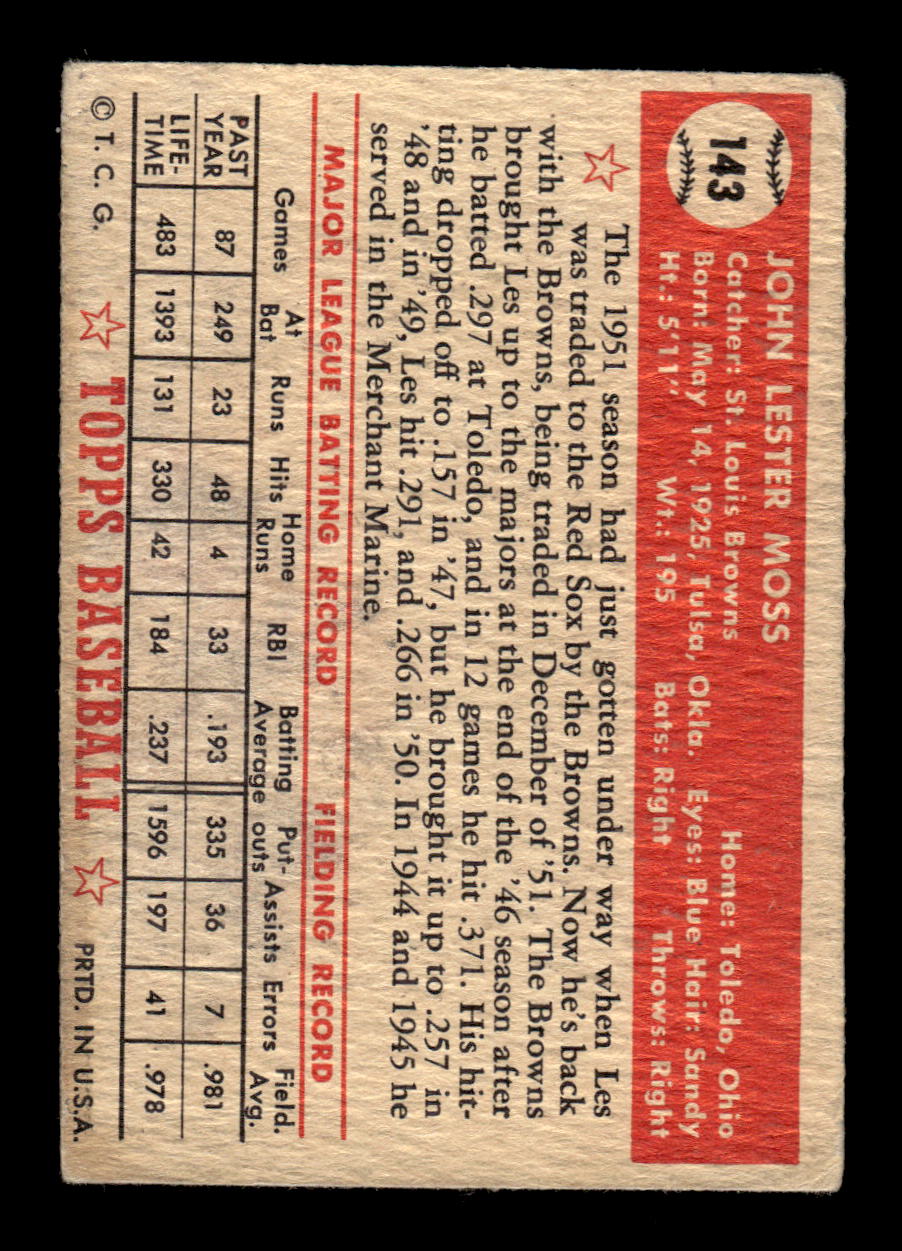 143
JOHN LESTER MOSS
Catcher: St. Louis Browns Home: Toledo, Ohio
Born: May 14, 1925, Tulsa, Okla. Eyes: Blue Hair: Sandy
Ht.: 5'11" Wt.: 195 Bats: Right Throws: Right
The 1951 season had just gotten under way when Les
was traded to the Red Sox by the Browns. Now he's back
with the Browns, being traded in December of '51. The Browns
brought Les up to the majors at the end of the '46 season after
he batted .297 at Toledo, and in 12 games he hit .371. His hit-
ting dropped off to .157 in '47, but he brought it up to .257 in
'48 and in '49, Les hit .291, and .266 in '50. In 1944 and 1945 he
served in the Merchant Marine.
MAJOR LEAGUE BATTING RECORD FIELDING RECORD
Games At Bat Runs Hits Home Runs RBI Batting Average Put-outs Assists Errors Field. Avg.
PAST YEAR 87 249 23 48 4 33 .193 335 36 7 .981
LIFE-TIME 483 1393 131 330 42 184 .237 1596 197 41 .978
© T. C. G. TOPPS BASEBALL PRTD. IN U.S.A.